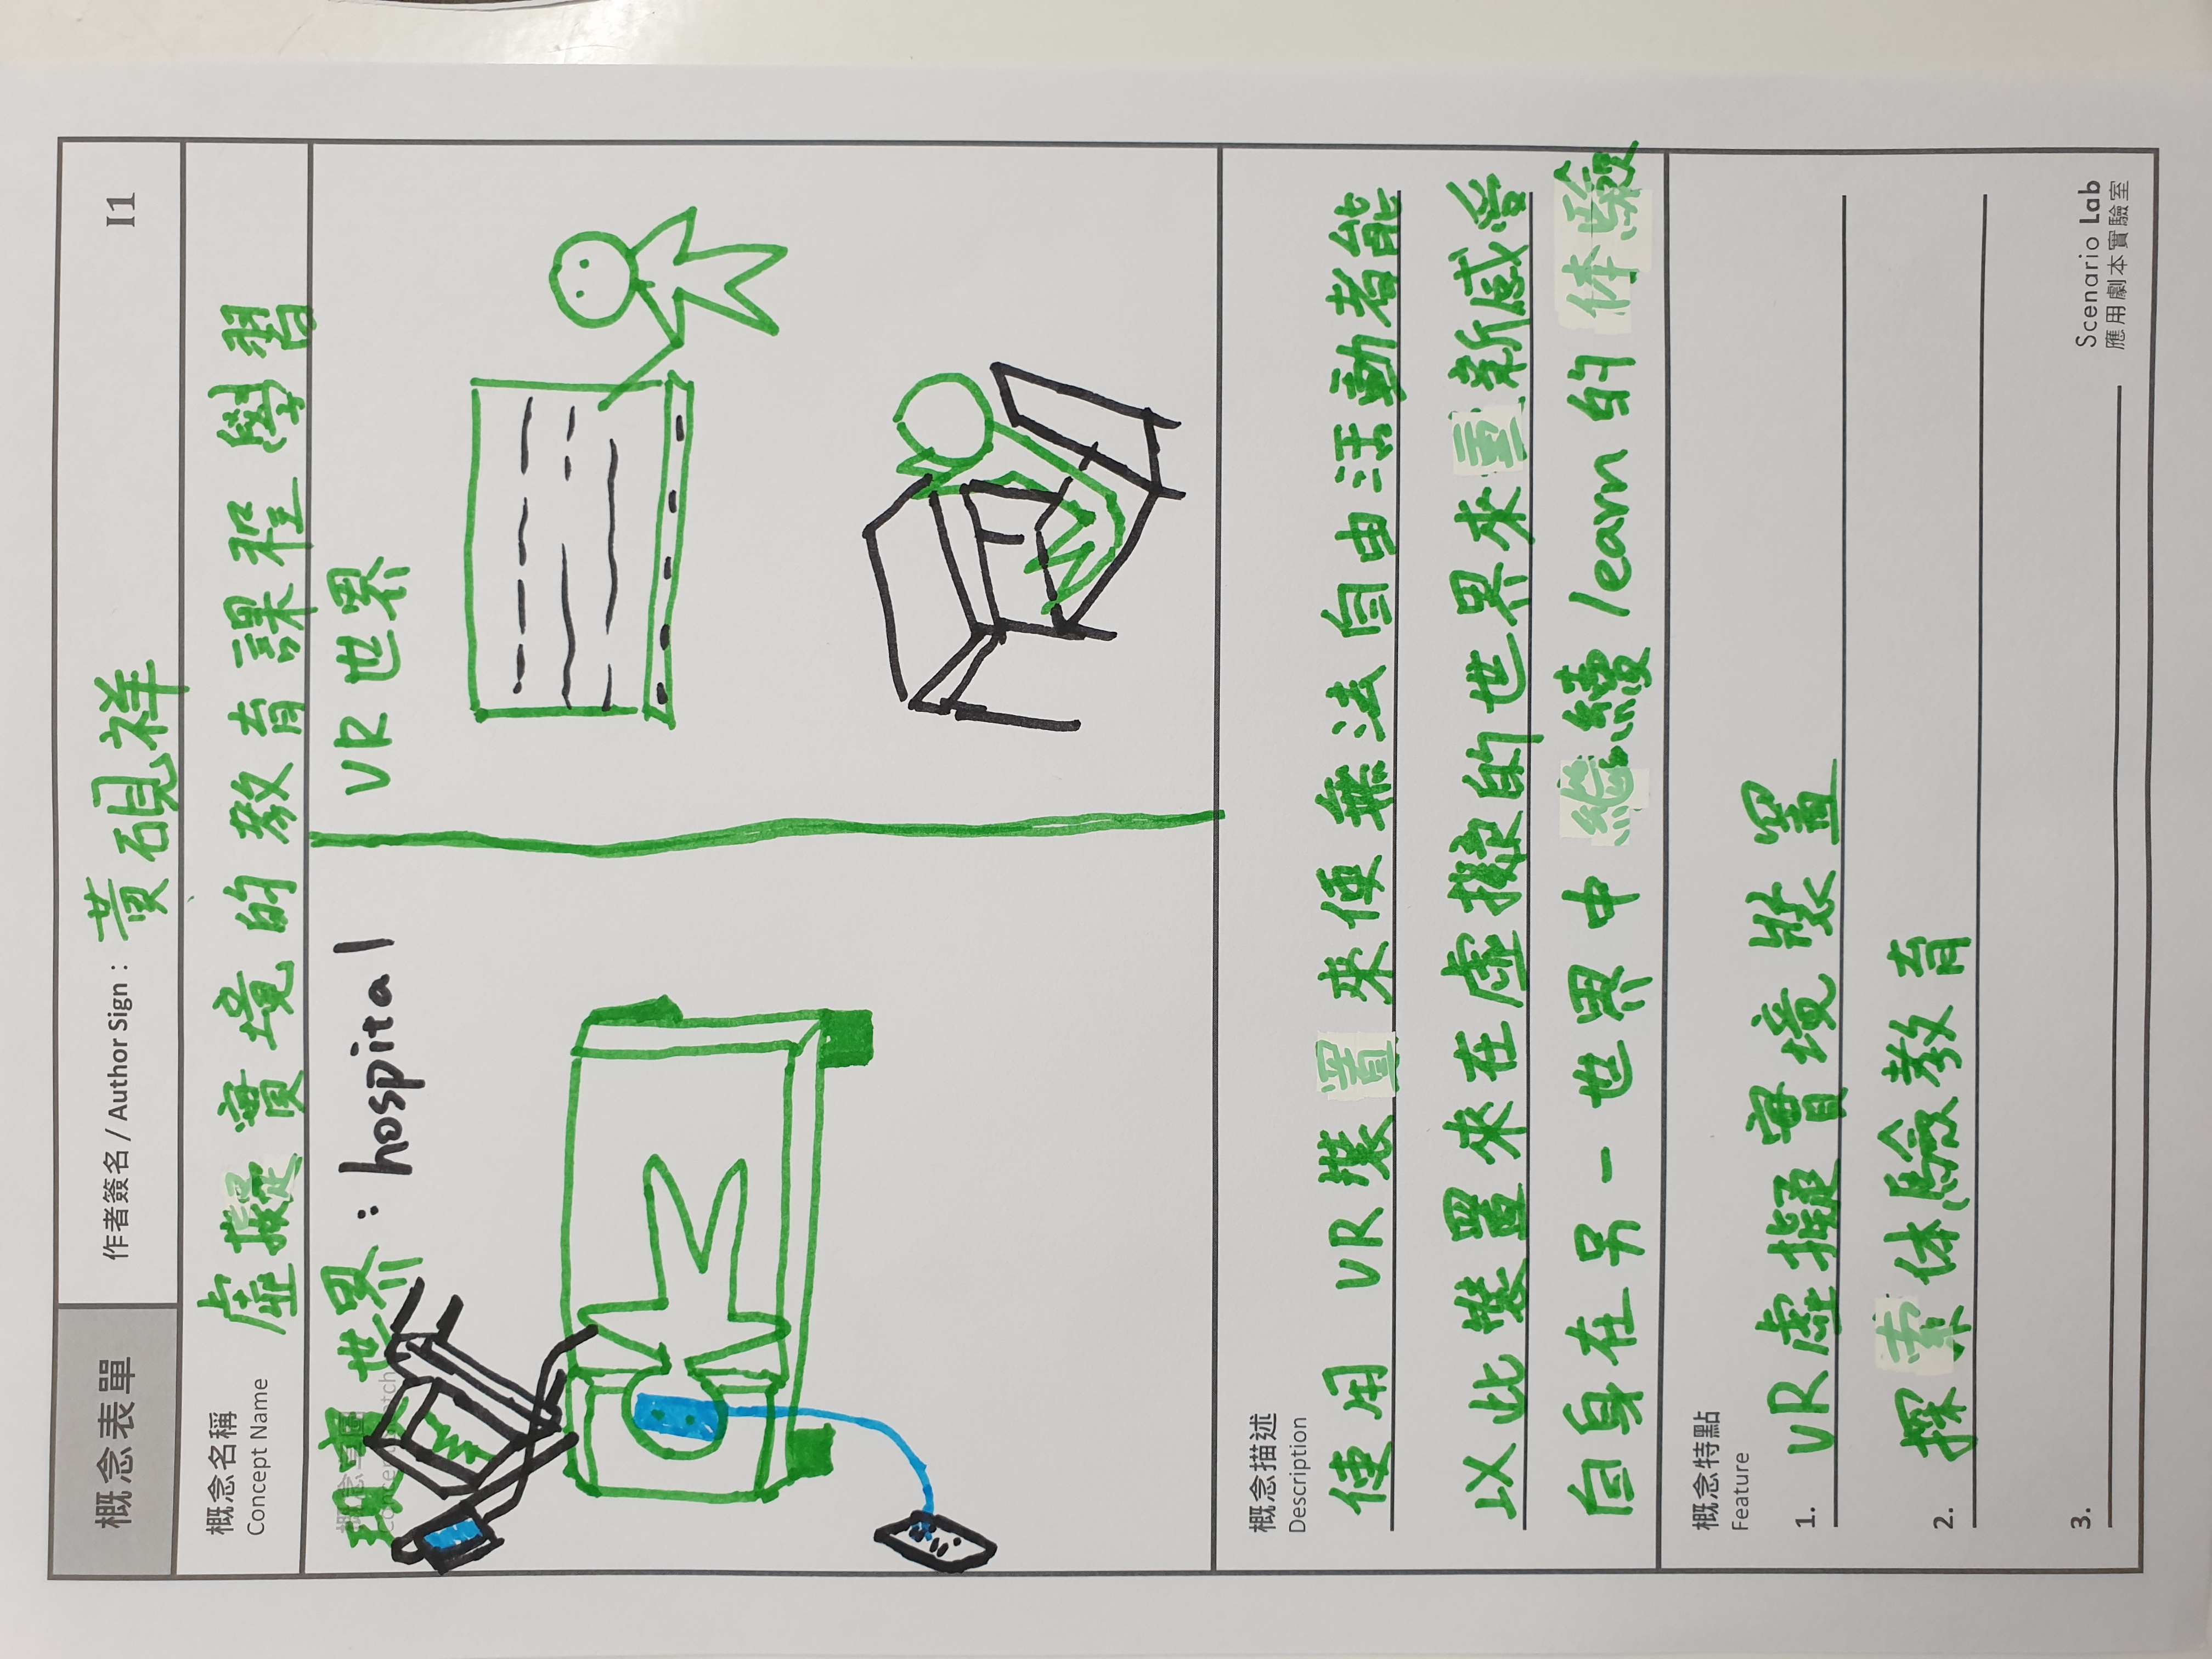 概念表單
作者簽名 / Author Sign：黃硯祥
I1
概念名稱
Concept Name
虛擬實境的教育課程學習
概念草圖
Concept Sketch
現實世界：hospital
VR世界
概念描述
Description
使用 VR裝置來使無法自由活動者能
以此裝置來在虛擬的世界來重新感受
自身在另一世界中繼續learn的体驗
概念特點
Feature
1. VR虛擬實境裝置
2. 探索体驗教育
3.
Scenario Lab
應用劇本實驗室